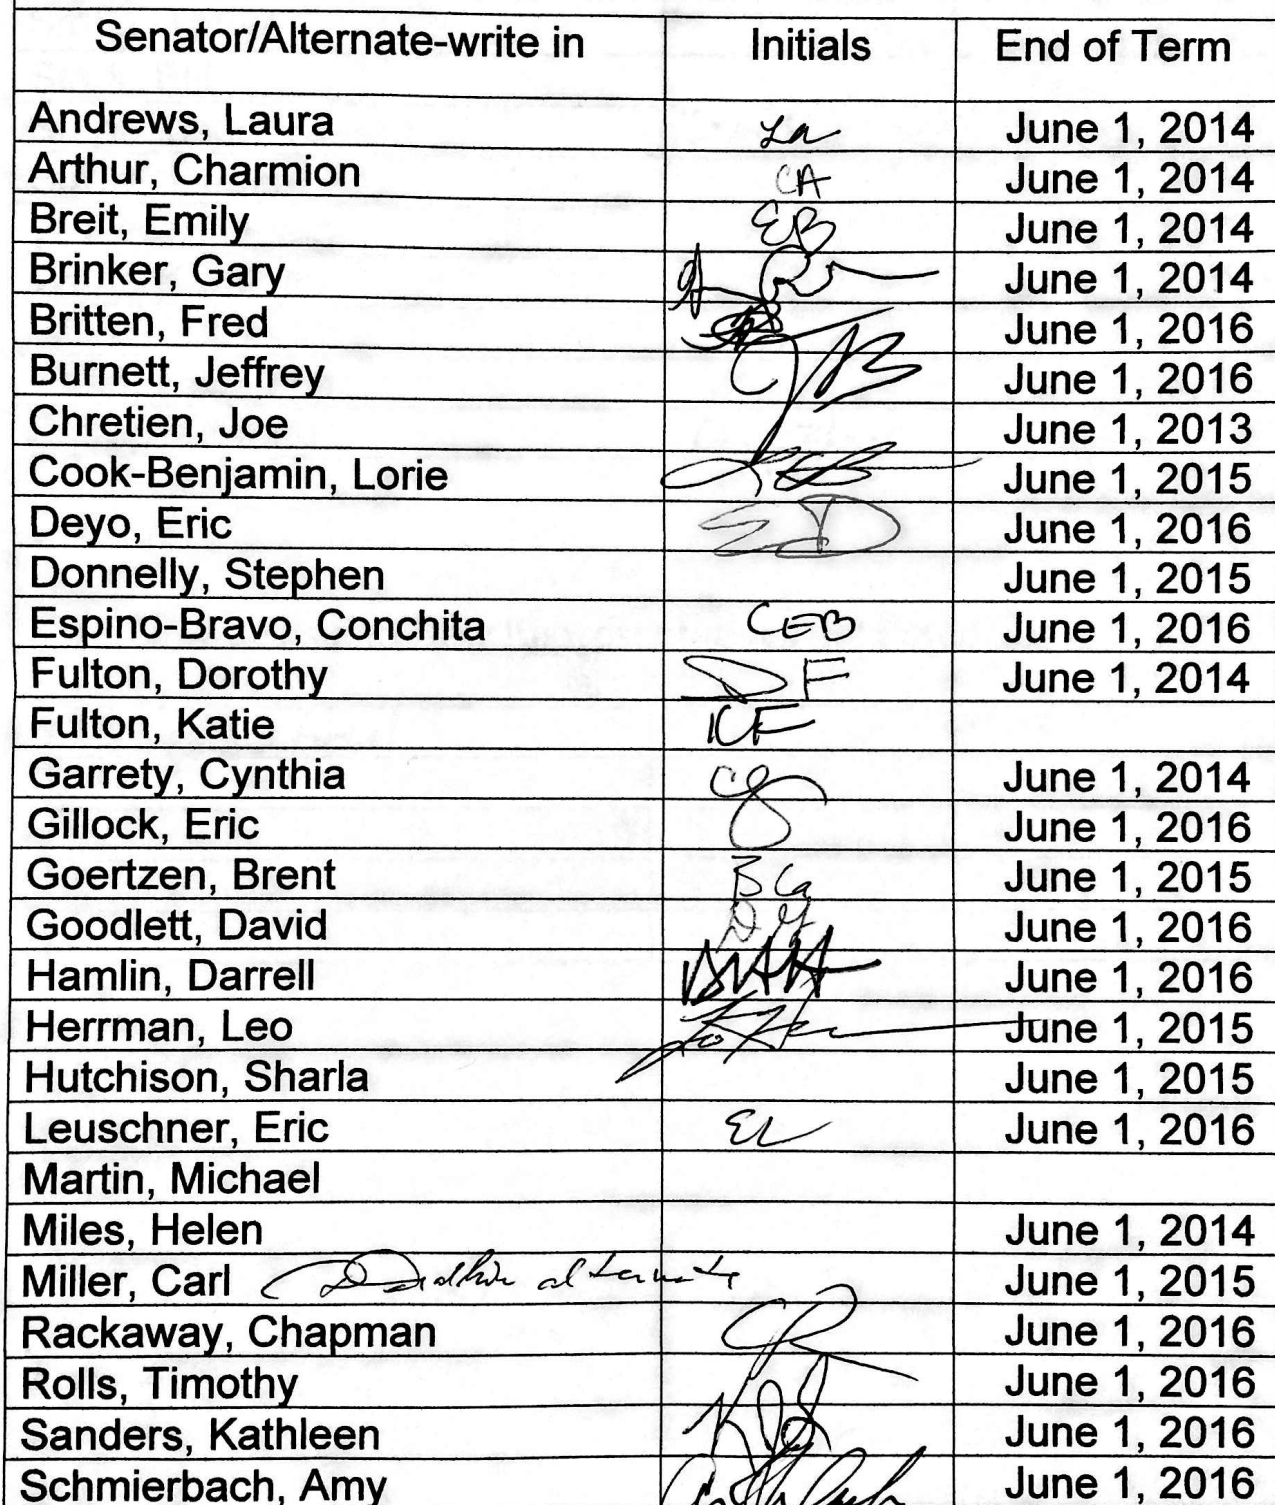 Senator/Alternate-write in Initials End of Term
Andrews, Laura La June 1, 2014
Arthur, Charmion CA June 1, 2014
Breit, Emily EB June 1, 2014
Brinker, Gary June 1, 2014
Britten, Fred June 1, 2016
Burnett, Jeffrey JB June 1, 2016
Chretien, Joe June 1, 2013
Cook-Benjamin, Lorie June 1, 2015
Deyo, Eric ED June 1, 2016
Donnelly, Stephen June 1, 2015
Espino-Bravo, Conchita CEB June 1, 2016
Fulton, Dorothy DF June 1, 2014
Fulton, Katie KF
Garrety, Cynthia cg June 1, 2014
Gillock, Eric June 1, 2016
Goertzen, Brent BG June 1, 2015
Goodlett, David DG June 1, 2016
Hamlin, Darrell June 1, 2016
Herrman, Leo June 1, 2015
Hutchison, Sharla June 1, 2015
Leuschner, Eric EL June 1, 2016
Martin, Michael
Miles, Helen June 1, 2014
Miller, Carl alternate June 1, 2015
Rackaway, Chapman CR June 1, 2016
Rolls, Timothy June 1, 2016
Sanders, Kathleen KS June 1, 2016
Schmierbach, Amy June 1, 2016